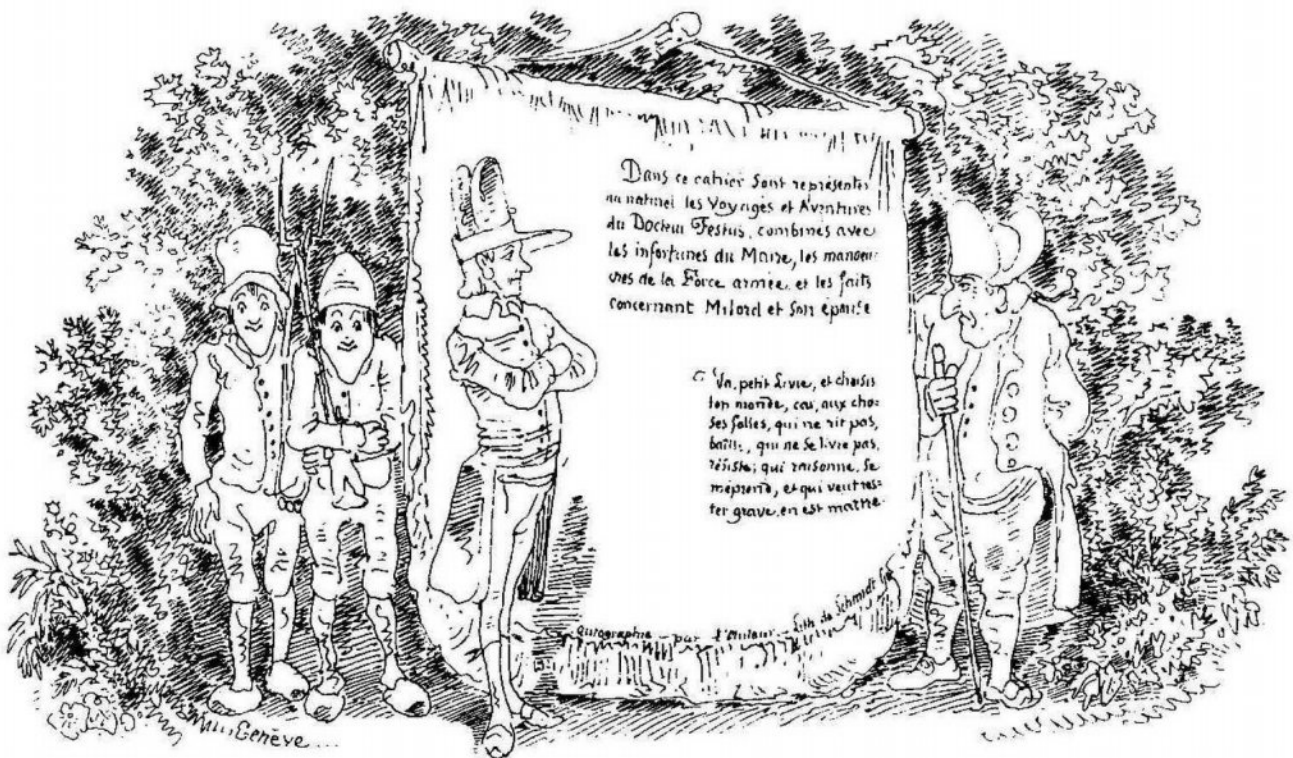 Dans ce cahier sont représentés
au naturel les Voyages et Aventures
du Docteur Festus, combinés avec
les infortunes du Maire, les manoeu-
vres de la Force armée, et les faits
concernant Milord et son épouse
Va, petit Livre, et choisis
ton monde, car, aux cho-
ses folles, qui ne rit pas,
baille; qui ne se livre pas,
résiste; qui raisonne, se
méprend, et qui veut res-
ter grave, en est maitre.
autographié - par l'Auteur - Lith de Schmidt
Genève